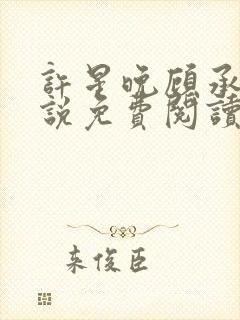 許星晚顧承
說免費閱讀
來俊臣